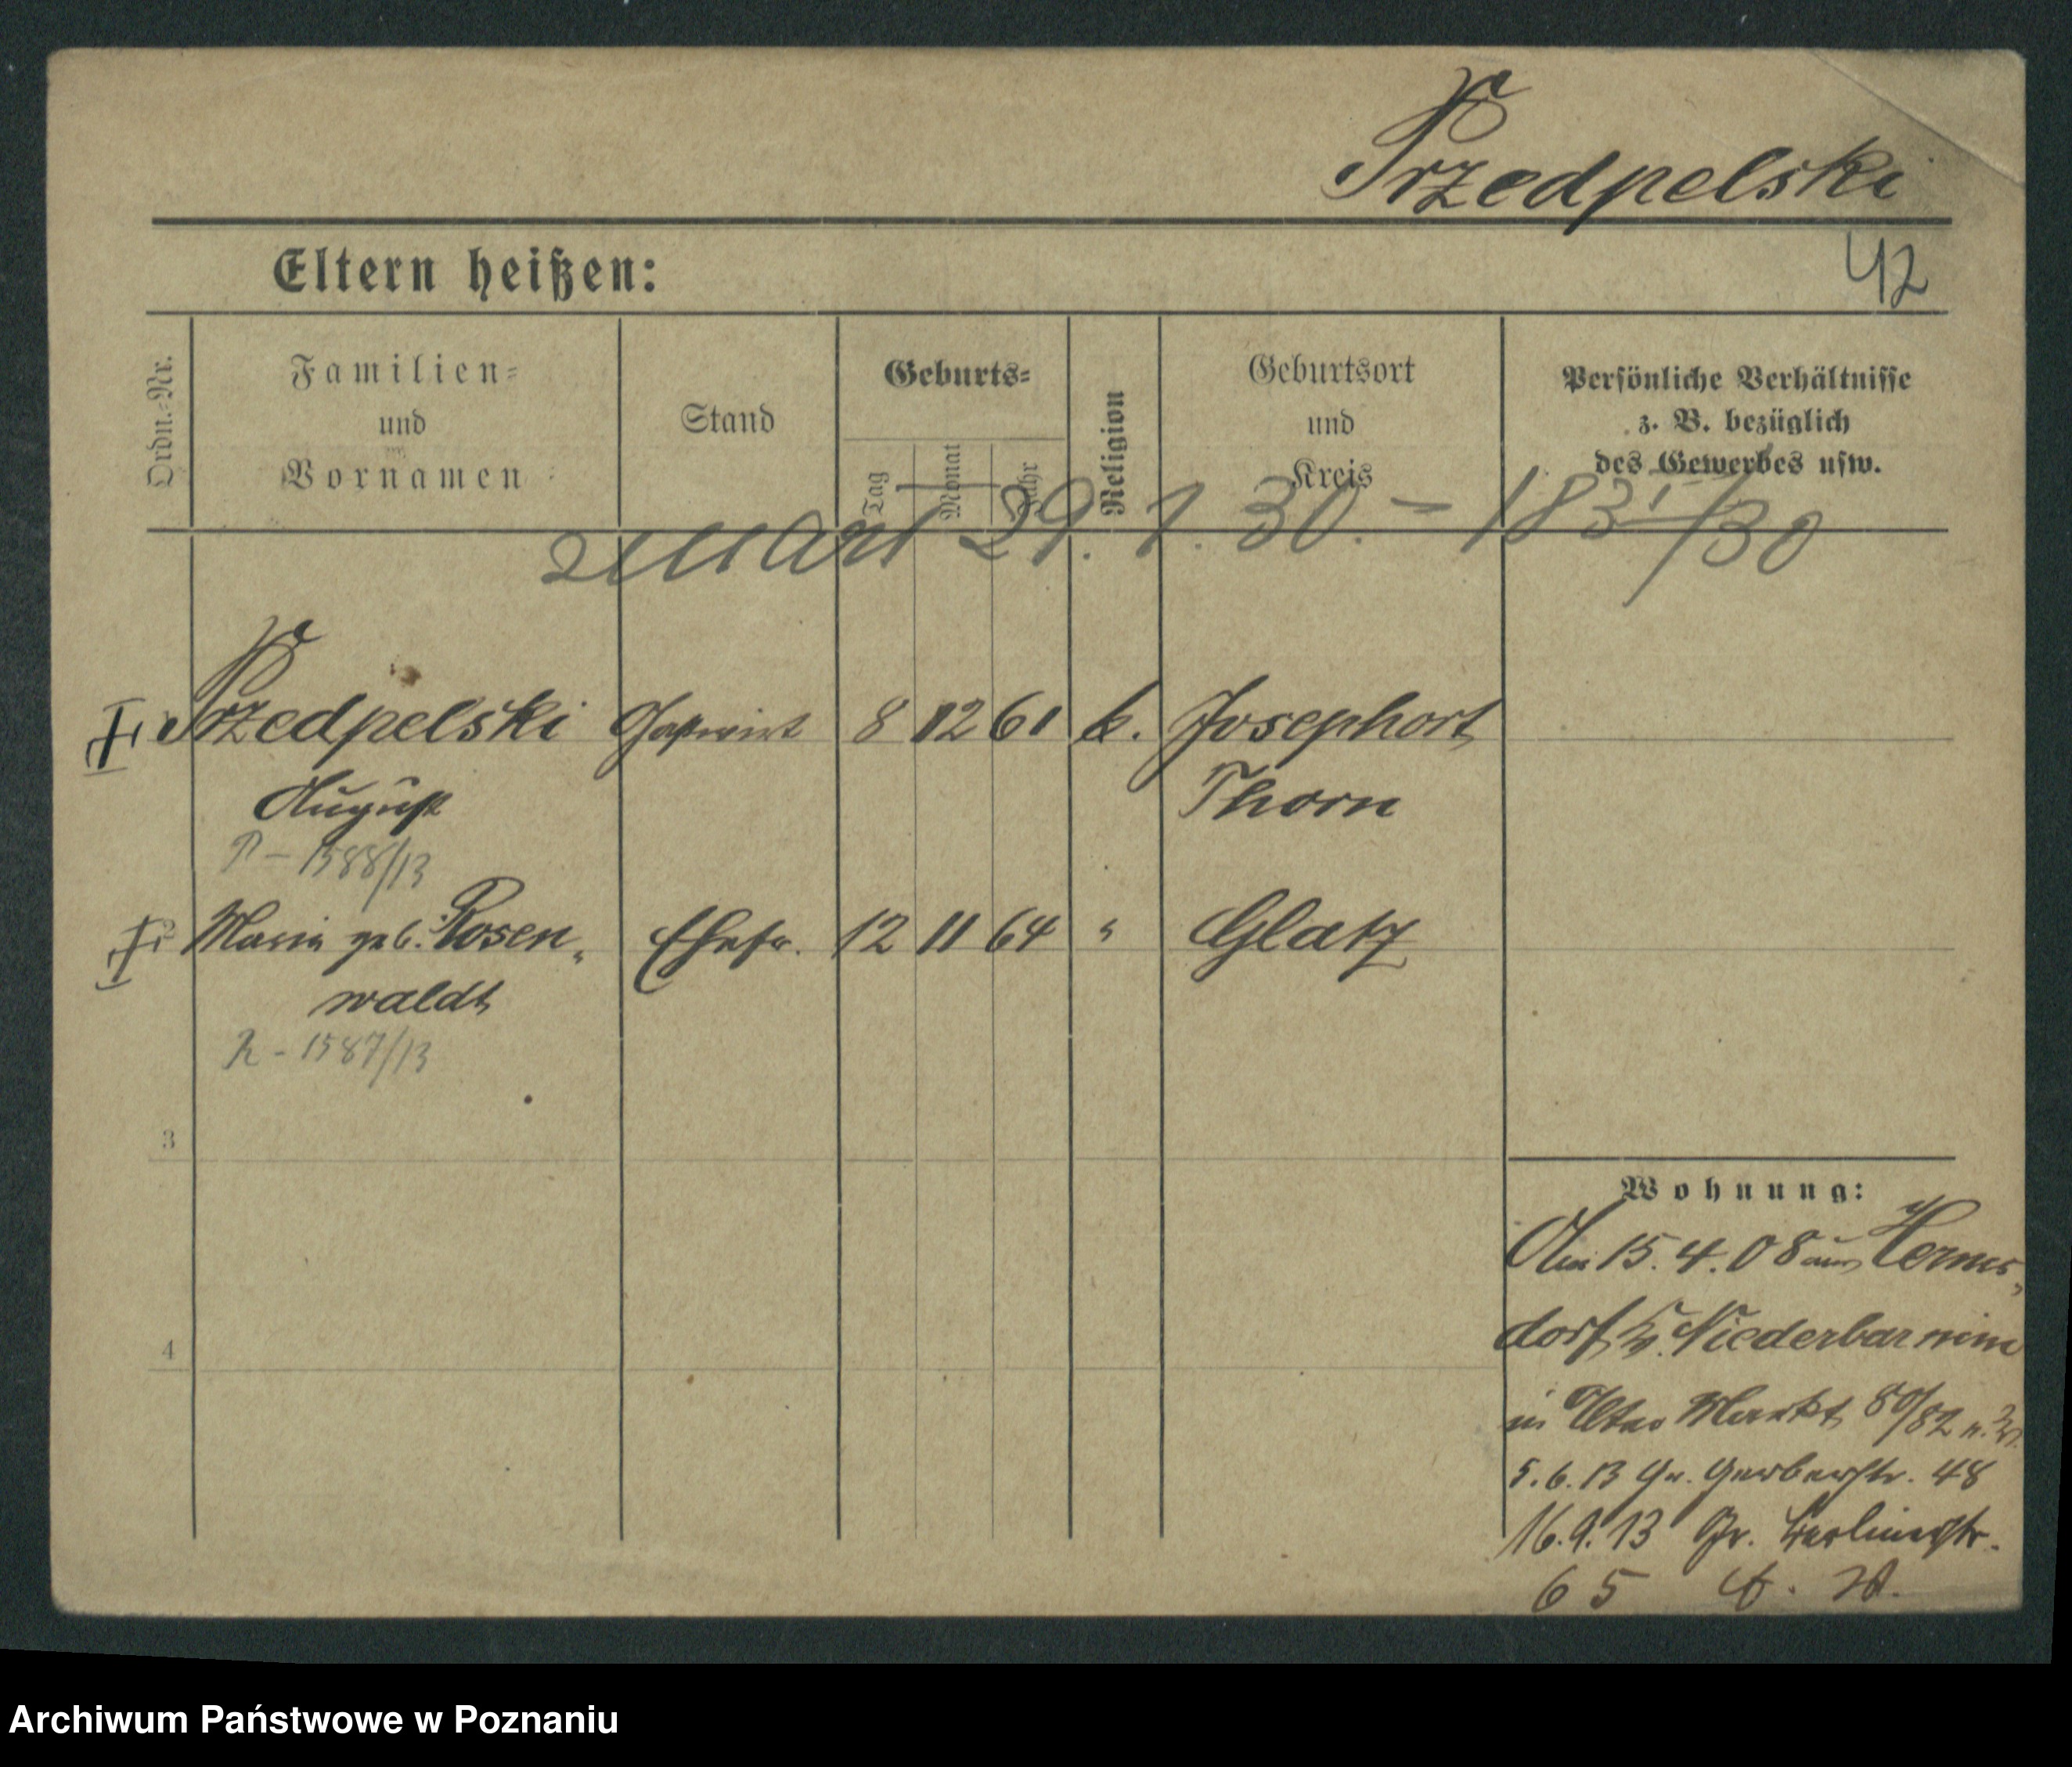 Przedpelski
Eltern heißen:
42
Ordn.-Nr.
Familien-
und
Vornamen
Stand
Geburts-
Tag
Monat
Jahr
Religion
Geburtsort
und
Kreis
Persönliche Verhältnisse
z. B. bezüglich
des Gewerbes usw.
zmarł 29. 1. 30. – 183/30
Przedpelski Gastwirt 8 12 61 k. Josephort
August Thorn
1588/13
Maria geb. Rosen-
waldt
Ehefr. 12 11 64 " Glatz
R - 1587/13
3
4
Wohnung:
Am 15.4.08 aus Herms-
dorf Kr. Niederbarnim
in Alter Markt 80/82
5.6.13 Gr. Gerberstr. 48
16.9.13 Gr. Berlinerstr.
65
Archiwum Państwowe w Poznaniu